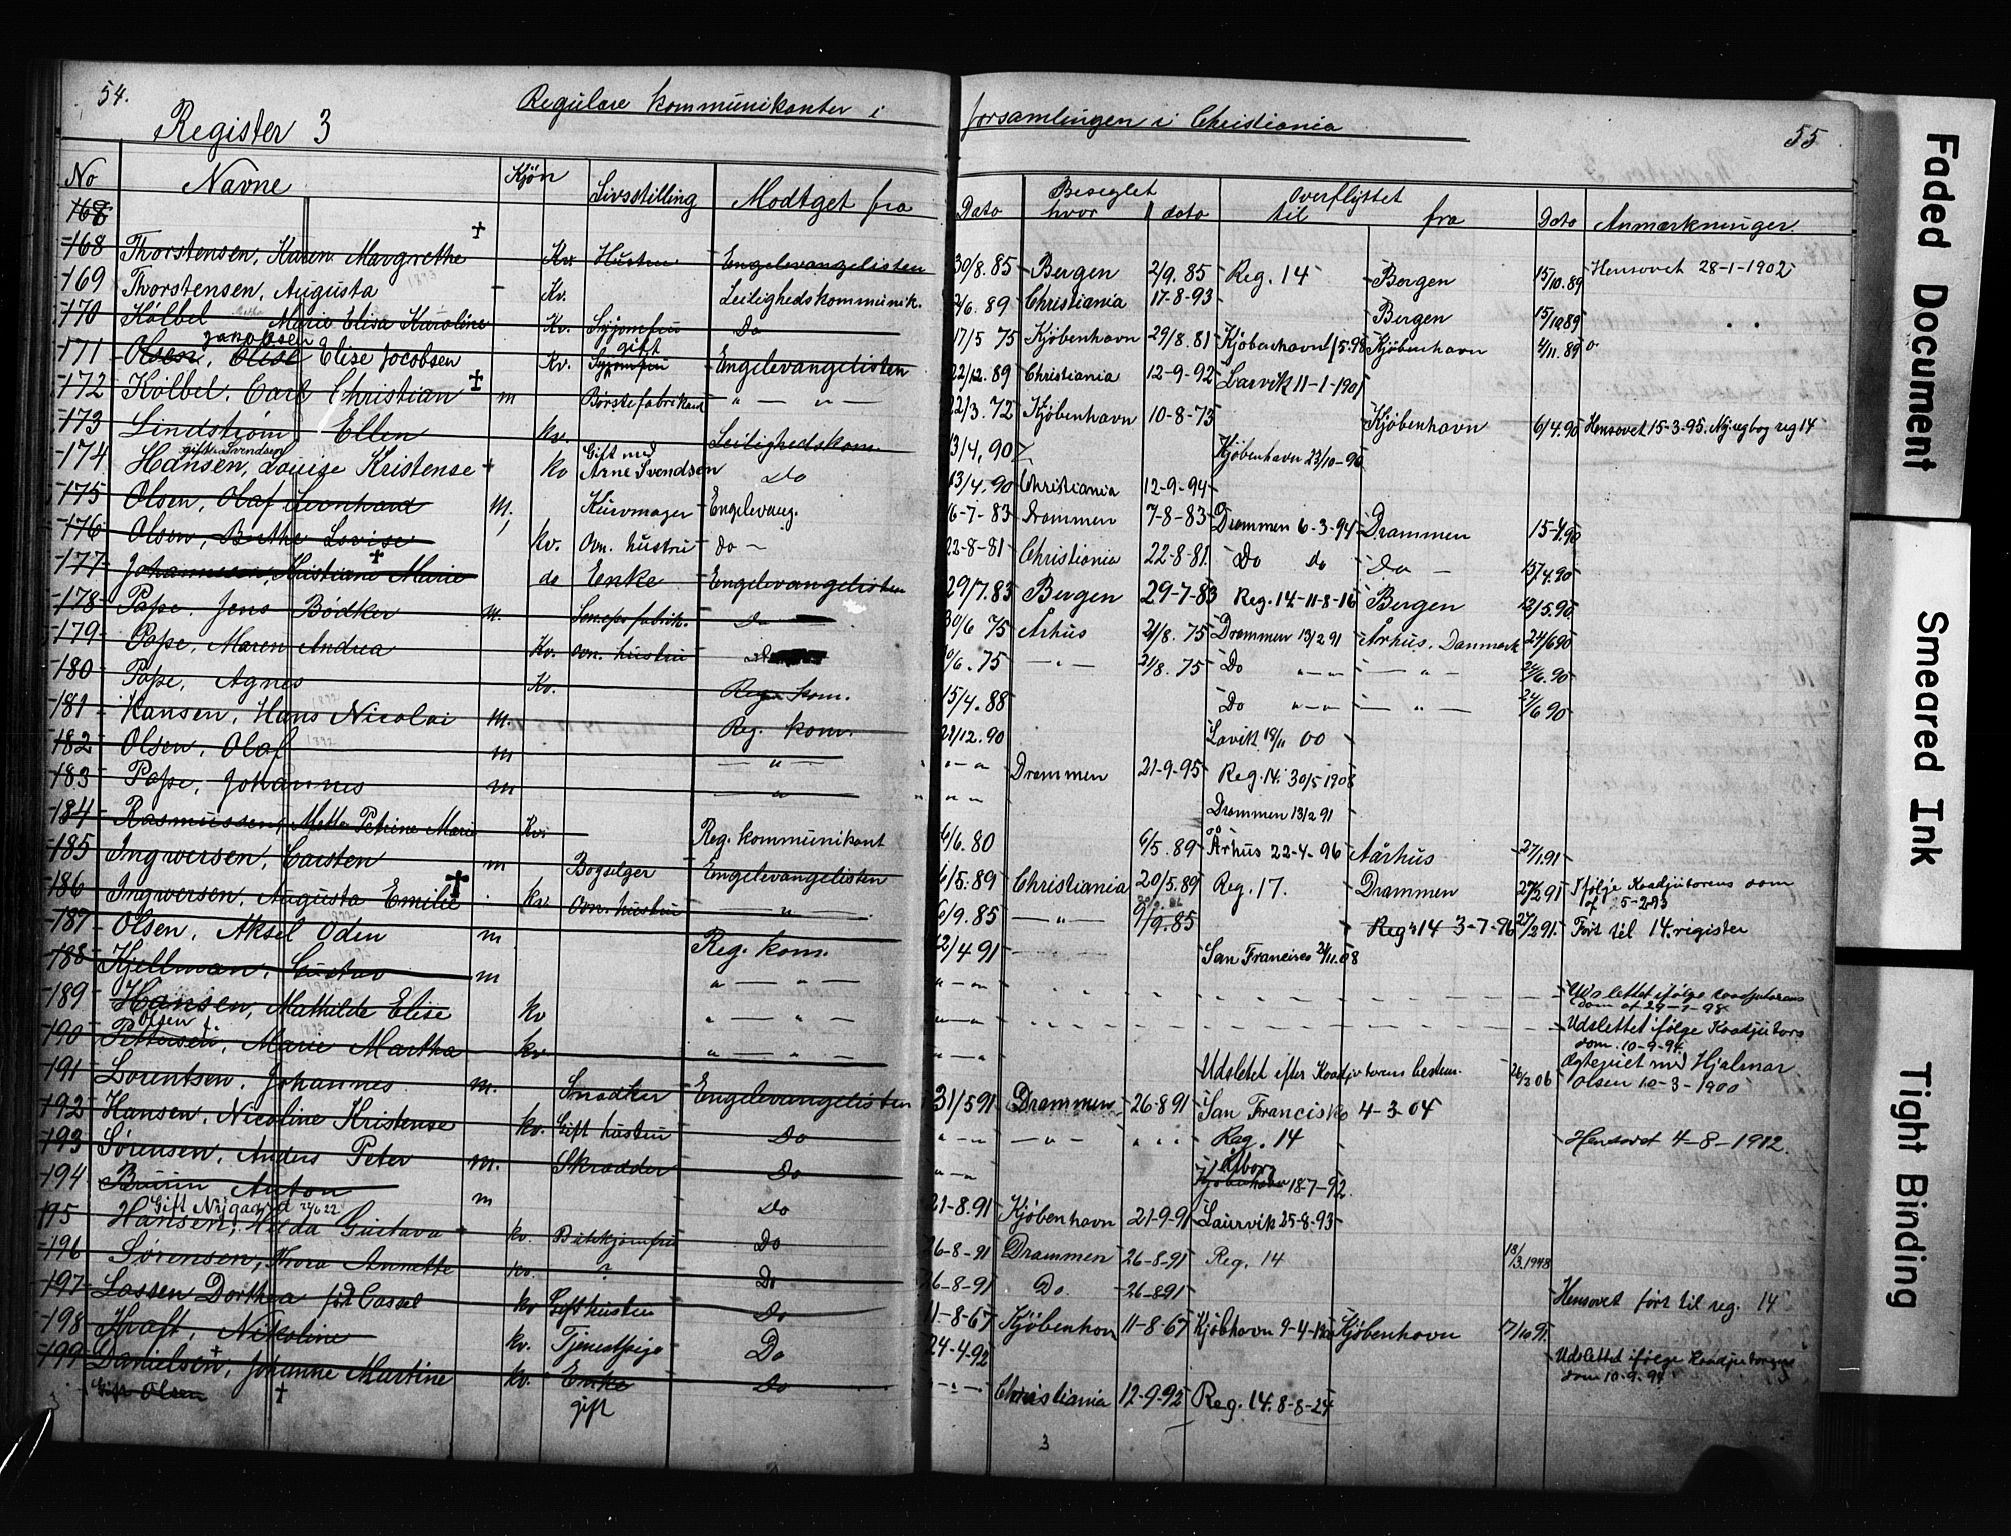 54.
Regulære kommunikanter i forsamlingen i Christiania
55
Register 3
No Navne Kjøn Livsstilling Modtget fra Dato Beseglet hvor dato overflyttet til fra Dato Anmærkninger.
168 Thorstensen, Karen Margrethe † Kv. Hustru Engelevangelisten 30/8.85 Bergen 2/9.85 Reg. 14 Bergen 15/10.89 Hensovet 28-1-1902
169 Thorstensen, Augusta Kv. Leilighedskommunik. 2/6.89 Christiania 17-8-93 Bergen 15/10 89
170 Kølbel Marie Elisa Karoline Kv. Syjomfru Do 17/5 75 Kjøbenhavn 29/8.81 Kjøbenhavn 1/5.98 Kjøbenhavn 4/11.89
Jakobsen gift
171 Olsen, Elise Elise Jacobsen Kv. Syjomfru Engelevangelisten 22/12.89 Christiania 12-9-92 Larvik 11-1-1901
172 Kølbel, Carl Christian † m Børstefabrikant " — " — 22/3.72 Kjøbenhavn 10-8-73 Kjøbenhavn 6/4.90 Hensovet 15-3-95. Ny regbog reg 14
173 Lindstrøm, Ellen kv. Leilighedskom. 13/4.90 Kjøbenhavn 23/10-90
gift Svendsen Gift med
174 Hansen, Louise Kristense kv Arne Svendsen Do 13/4.90 Christiania 12-9-94
175 Olsen, Olaf Leonhard M. Kurvmager Engelevang. 6-7-83 Drammen 7-8-83 Drammen 6-3-94 Drammen 15-4.90
176 Olsen, Bethe Lovise kv. Ovn. hustru do 22-8-81 Christiania 22-8-81 Do do Do 15/4.90
177 Johannesen, Kristiane Marie † do Enke Engelevangelisten 29/7.83 Bergen 29-7-83 Reg. 14-11-8-16 Bergen 12/5.90
178 Pape, Jens Bödker m. Senepsfabrik. Do 30/6 75 Århus 21/8.75 Drammen 13/2 91 Århus, Danmark 24/6 90
179 Pape, Maren Andrea Kv. ovn. hustru 6.75 — " — 21/8.75 Do " — " — " — 24/6.90
180 Pape, Agnes Kv. Reg. kom. 15/4.88 Do " — " — " — 24/6 90
181 Hansen, Hans Nicolai M. Reg. kom. 28/12.90 Lavik 19/11 00
182 Olsen, Olaf m — " — " — " Drammen 21-9-95 Reg. 14. 30/5 1908
183 Pape, Johannes m — " — " " " Drammen 13/2 91
184 Rasmussen, Mette Petrine Marie Kv. Reg. kommunikant 6/6.80 6/5.89 Århus 22-4-96 Aarhus 27/1.91
185 Ingwersen, Carsten m Bogselger Engelevangelisten 6/5.89 Christiania 20/5.89 Reg. 17. Drammen 27/2 91 Ifølge Koadjutorens dom af 25-2-93
186 Ingwersen, Augusta Emilie † kv Ovn. hustru — " — 6/9.85 — " — 9/9.85 Reg 14 3-7-96 27/2 91. Ført til 14. register
187 Olsen, Aksel Oden m Reg. kom. 12/4 91 San Francisco 24/11.08
188 Kjellman, Gustav m " — " — " — " Udslettet ifølge Koadjutorens dom af 29-1-98
189 Hansen, Mathilde Elise kv " — " — " — " Udslettet ifølge Koadjutors dom. 10-9-94
Olsen
190 Pettersen, Marie Martha kv " — " — " — " Udsletet efter Koadjutorens bestem. 26/3 06 Ægteviet med Hjalmar Olsen 10-3-1900
191 Lorentsen, Johannes M. Snedker Engelevangelisten 31/5 91 Drammen 26-8 91 San Francisko 4-3-04
192 Hansen, Nicoline Kristense kv. Gift hustru Do " — " — " — " " " Reg. 14 Hensovet 4-8-1912.
193 Sørensen, Anders Peter m. Skrædder Do " — " Ålborg Kjøbenhavn 18-7-92.
194 Bruun Anton m Do 21-8.91 Kjøbenhavn 21-9-91 Laurvik 25-8-93
Gift Nygaard 24/6 22
195 Hansen, Hilda Gustava kv. Butikjomfru Do 26-8-91 Drammen 26-8-91 Reg. 14 18/3.1948
196 Sørensen, Thora Annette kv. ? Do 26-8-91 Do. 26-8 91 Hensovet ført til reg. 14
197 Lassen Dorthea født Cassel kv Gift hustru Do 11-8-67 Kjøbenhavn 11-8-67 Kjøbhavn 9-4- Kjøbenhavn 17/10 91.
198 Kraft, Nikoline kv. Tjenestpige Do 24-4-92 Udslettet ifølge Koadjutorens dom 10-9-94
199 Danielsen, Johanne Martine kv. Enke Do " — " Christiania 12-9-92 Reg. 14. 8-8-24
Gift Olsen † gift
3
Faded Document
Smeared Ink
Tight Binding